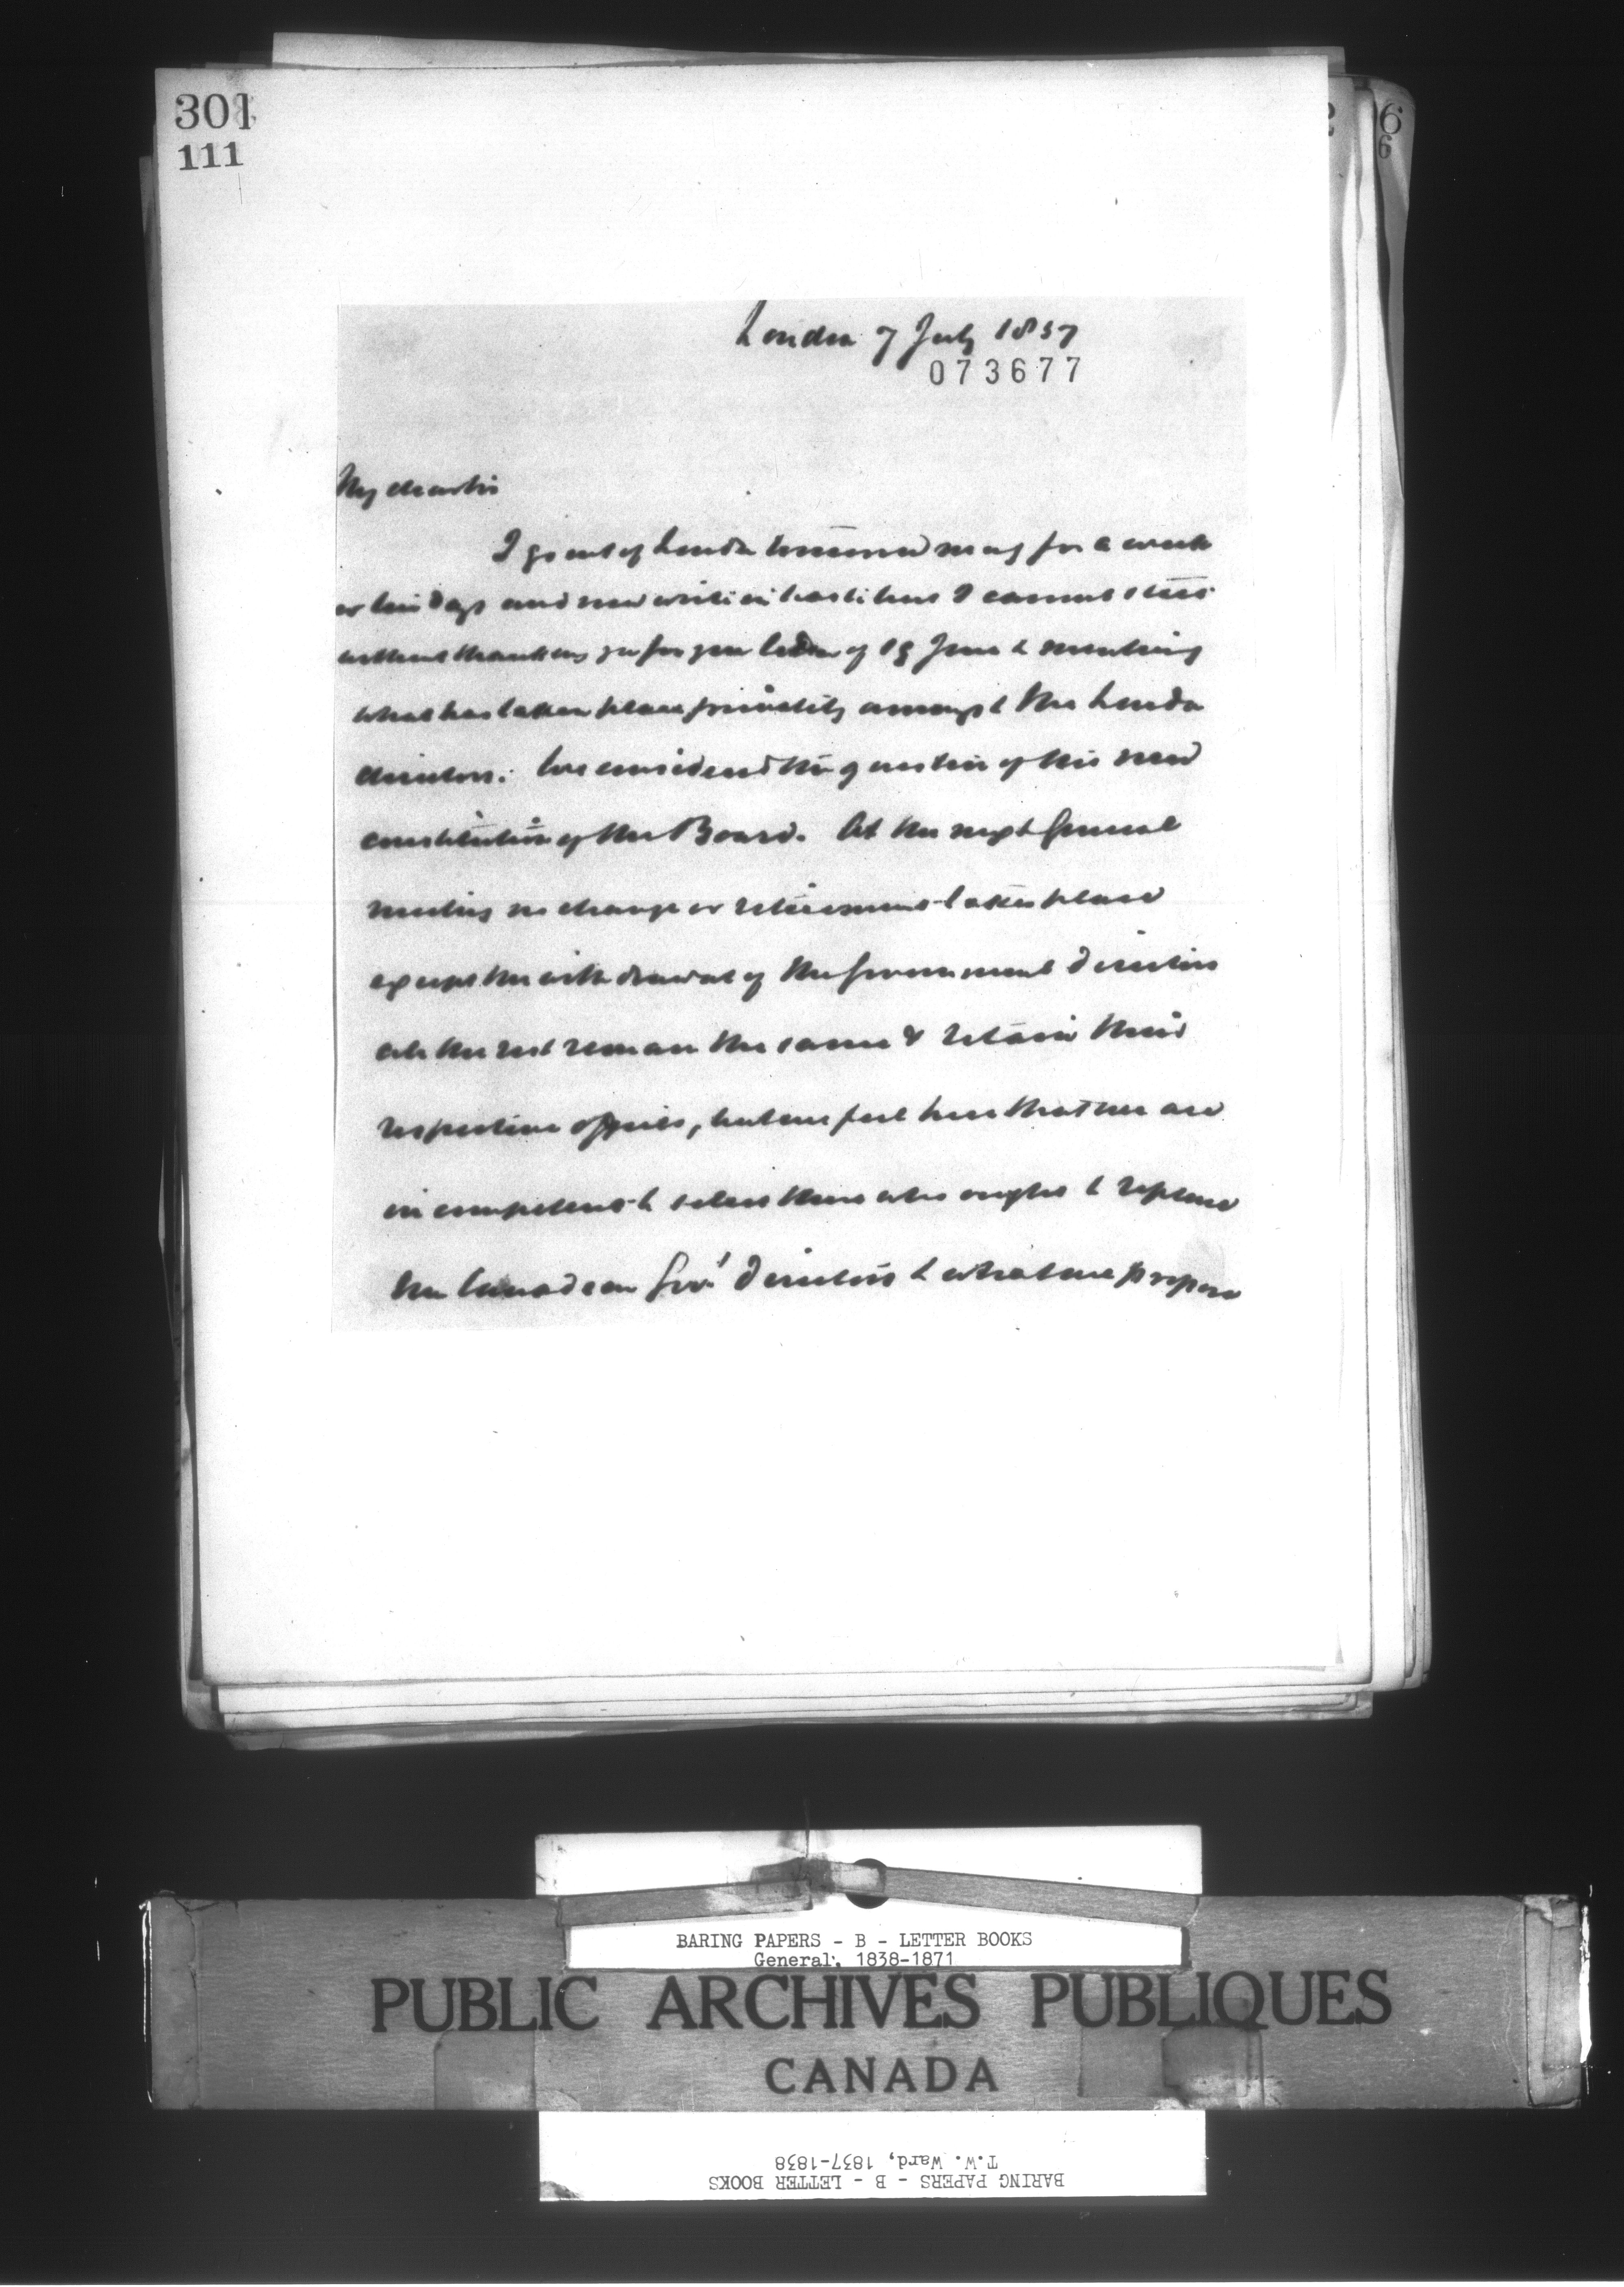 301
111
2
6
6
London 7 July 1857
073677
My dear Sir
I go out of London tomorrow mg for a week
or ten days and now write in haste but I cannot
without thanking you for your letter of 19 June &
what has taken place privately amongst the London
directors. We considered the question of the new
constitution of the Board. At the next General
meeting no change or retirement takes place
except the withdrawal of the Government directors
all the rest remain the same & retain their
respective offices, but we feel here that we are
incompetent to select those who ought to replace
the Canadian Govt directors & what we propose
BARING PAPERS - B - LETTER BOOKS
General, 1838-1871
PUBLIC ARCHIVES PUBLIQUES
CANADA
BARING PAPERS - B - LETTER BOOKS
T.W. Ward, 1837-1838